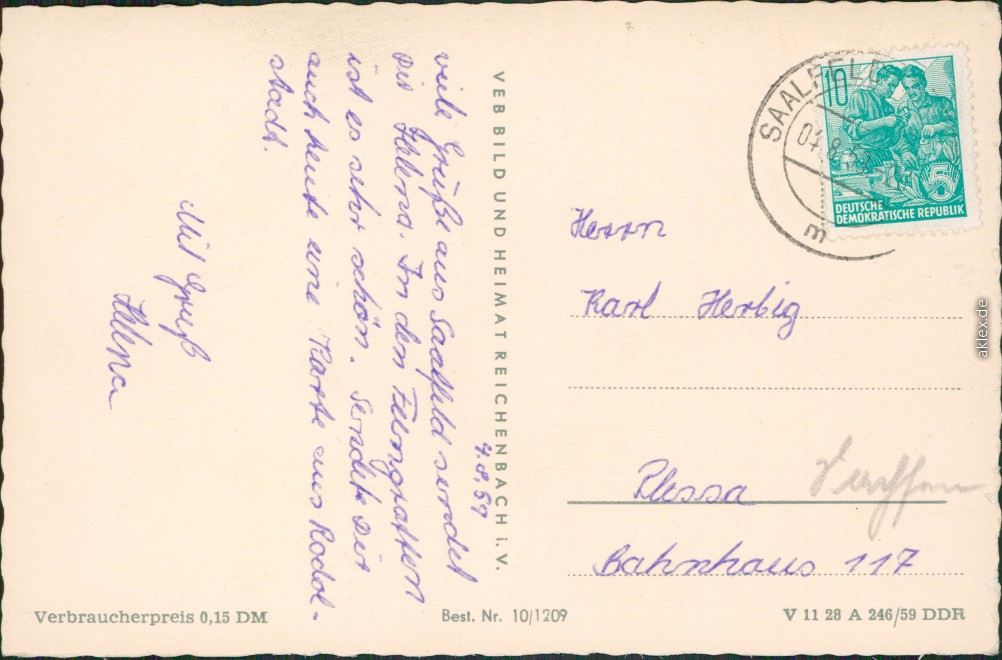 4.8.59
viele Grüße aus Saalfeld sendet
Dir Helena. In den Feengrotten
ist es sehr schön. Sendete Dir
auch heute eine Karte aus Rodol-
stadt.
Mit Gruß
Helena
VEB BILD UND HEIMAT REICHENBACH i. V.
SAALFELD
m
10
5
DEUTSCHE
DEMOKRATISCHE REPUBLIK
Herrn
Karl Herbig
Plessa
Bahnhaus 117
Verbraucherpreis 0,15 DM
Best. Nr. 10/1209
V 11 28 A 246/59 DDR
aklex.de